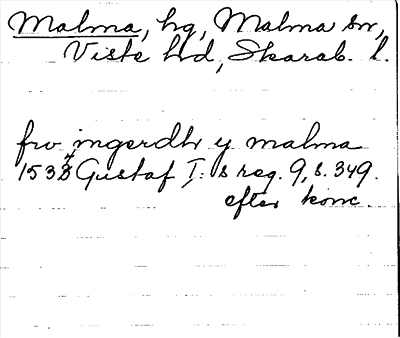 Malma, hg, Malma sn,
Viste hd, Skarab. l.
frv ingerdh y malma
1534 Gustaf I: s reg. 9, s. 349.
efter konc.